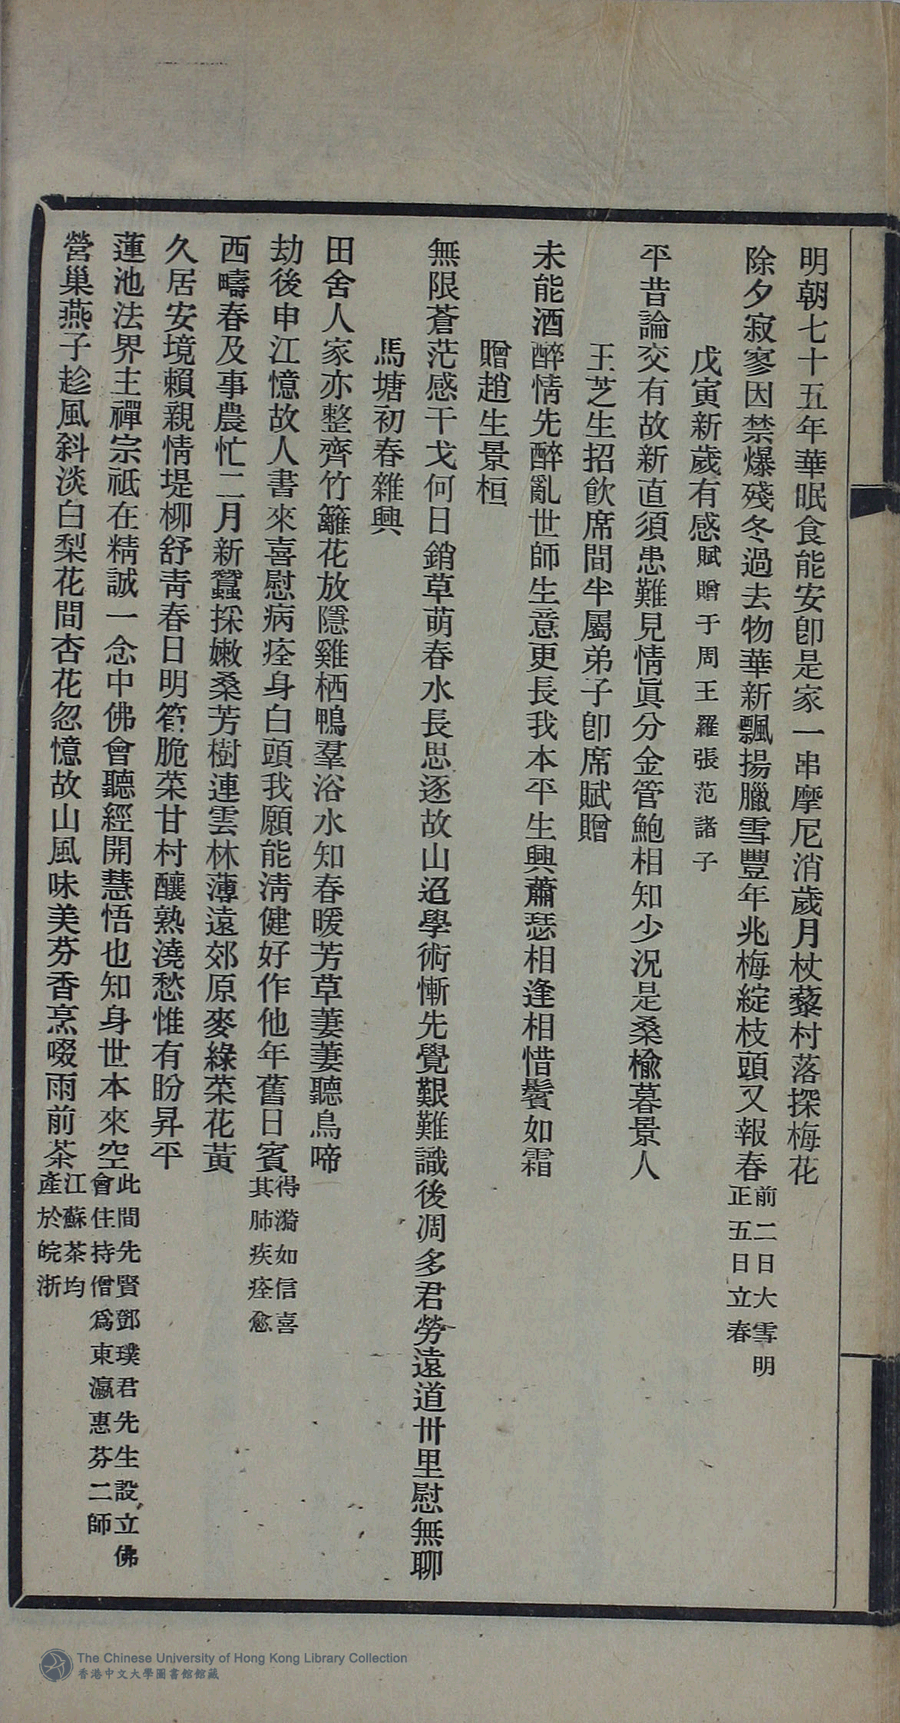 明朝七十五年華眠食能安卽是家一串摩尼消歲月杖藜村落探梅花
除夕寂寥因禁爆殘冬過去物華新飄揚臘雪豐年兆梅綻枝頭又報春前二日大雪明
正五日立春
戊寅新歲有感賦贈于周王羅張范諸子
平昔論交有故新直須患難見情眞分金管鮑相知少況是桑楡暮景人
王芝生招飮席間半屬弟子卽席賦贈
未能酒醉情先醉亂世師生意更長我本平生興蕭瑟相逢相惜鬢如霜
贈趙生景桓
無限蒼茫感干戈何日銷草萌春水長思逐故山迢學術慚先覺艱難識後凋多君勞遠道卅里慰無聊
馬塘初春雜興
田舍人家亦整齊竹籬花放隱雞栖鴨羣浴水知春暖芳草萋萋聽鳥啼
劫後申江憶故人書來喜慰病痊身白頭我願能淸健好作他年舊日賓得漪如信喜
其肺疾痊愈
西疇春及事農忙二月新蠶採嫩桑芳樹連雲林薄遠郊原麥綠菜花黃
久居安境賴親情堤柳舒靑春日明笋脆菜甘村釀熟澆愁惟有盼昇平
蓮池法界主禪宗祗在精誠一念中佛會聽經開慧悟也知身世本來空此間先賢鄧璞君先生設立佛
會住持僧爲東瀛惠芬二師
營巢燕子趁風斜淡白梨花間杏花忽憶故山風味美芬香烹啜雨前茶江蘇茶均
產於皖浙
The Chinese University of Hong Kong Library Collection
香港中文大學圖書館館藏